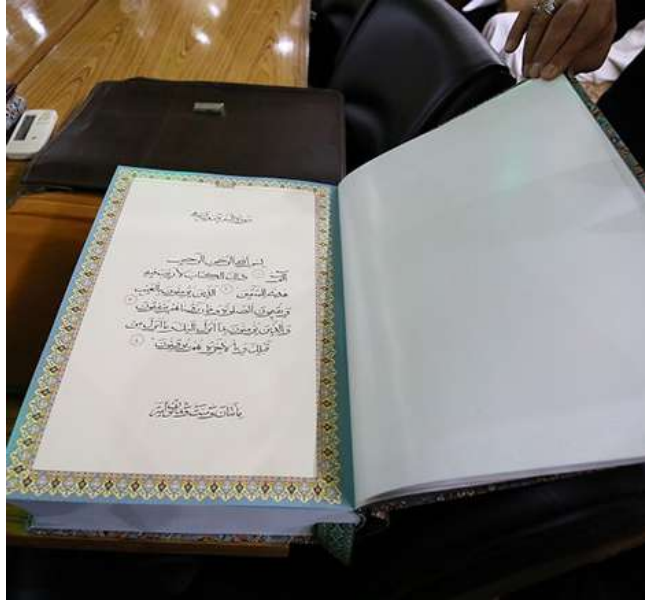 سورة البقرة
بسم الله الرحمن الرحيم
الم ذلك الكتاب لا ريب فيه
هدى للمتقين الذين يؤمنون بالغيب
ويقيمون الصلوة ومما رزقناهم ينفقون
والذين يؤمنون بما أنزل إليك وما أنزل من
قبلك وبالآخرة هم يوقنون
مائتان وست وثمانون آية